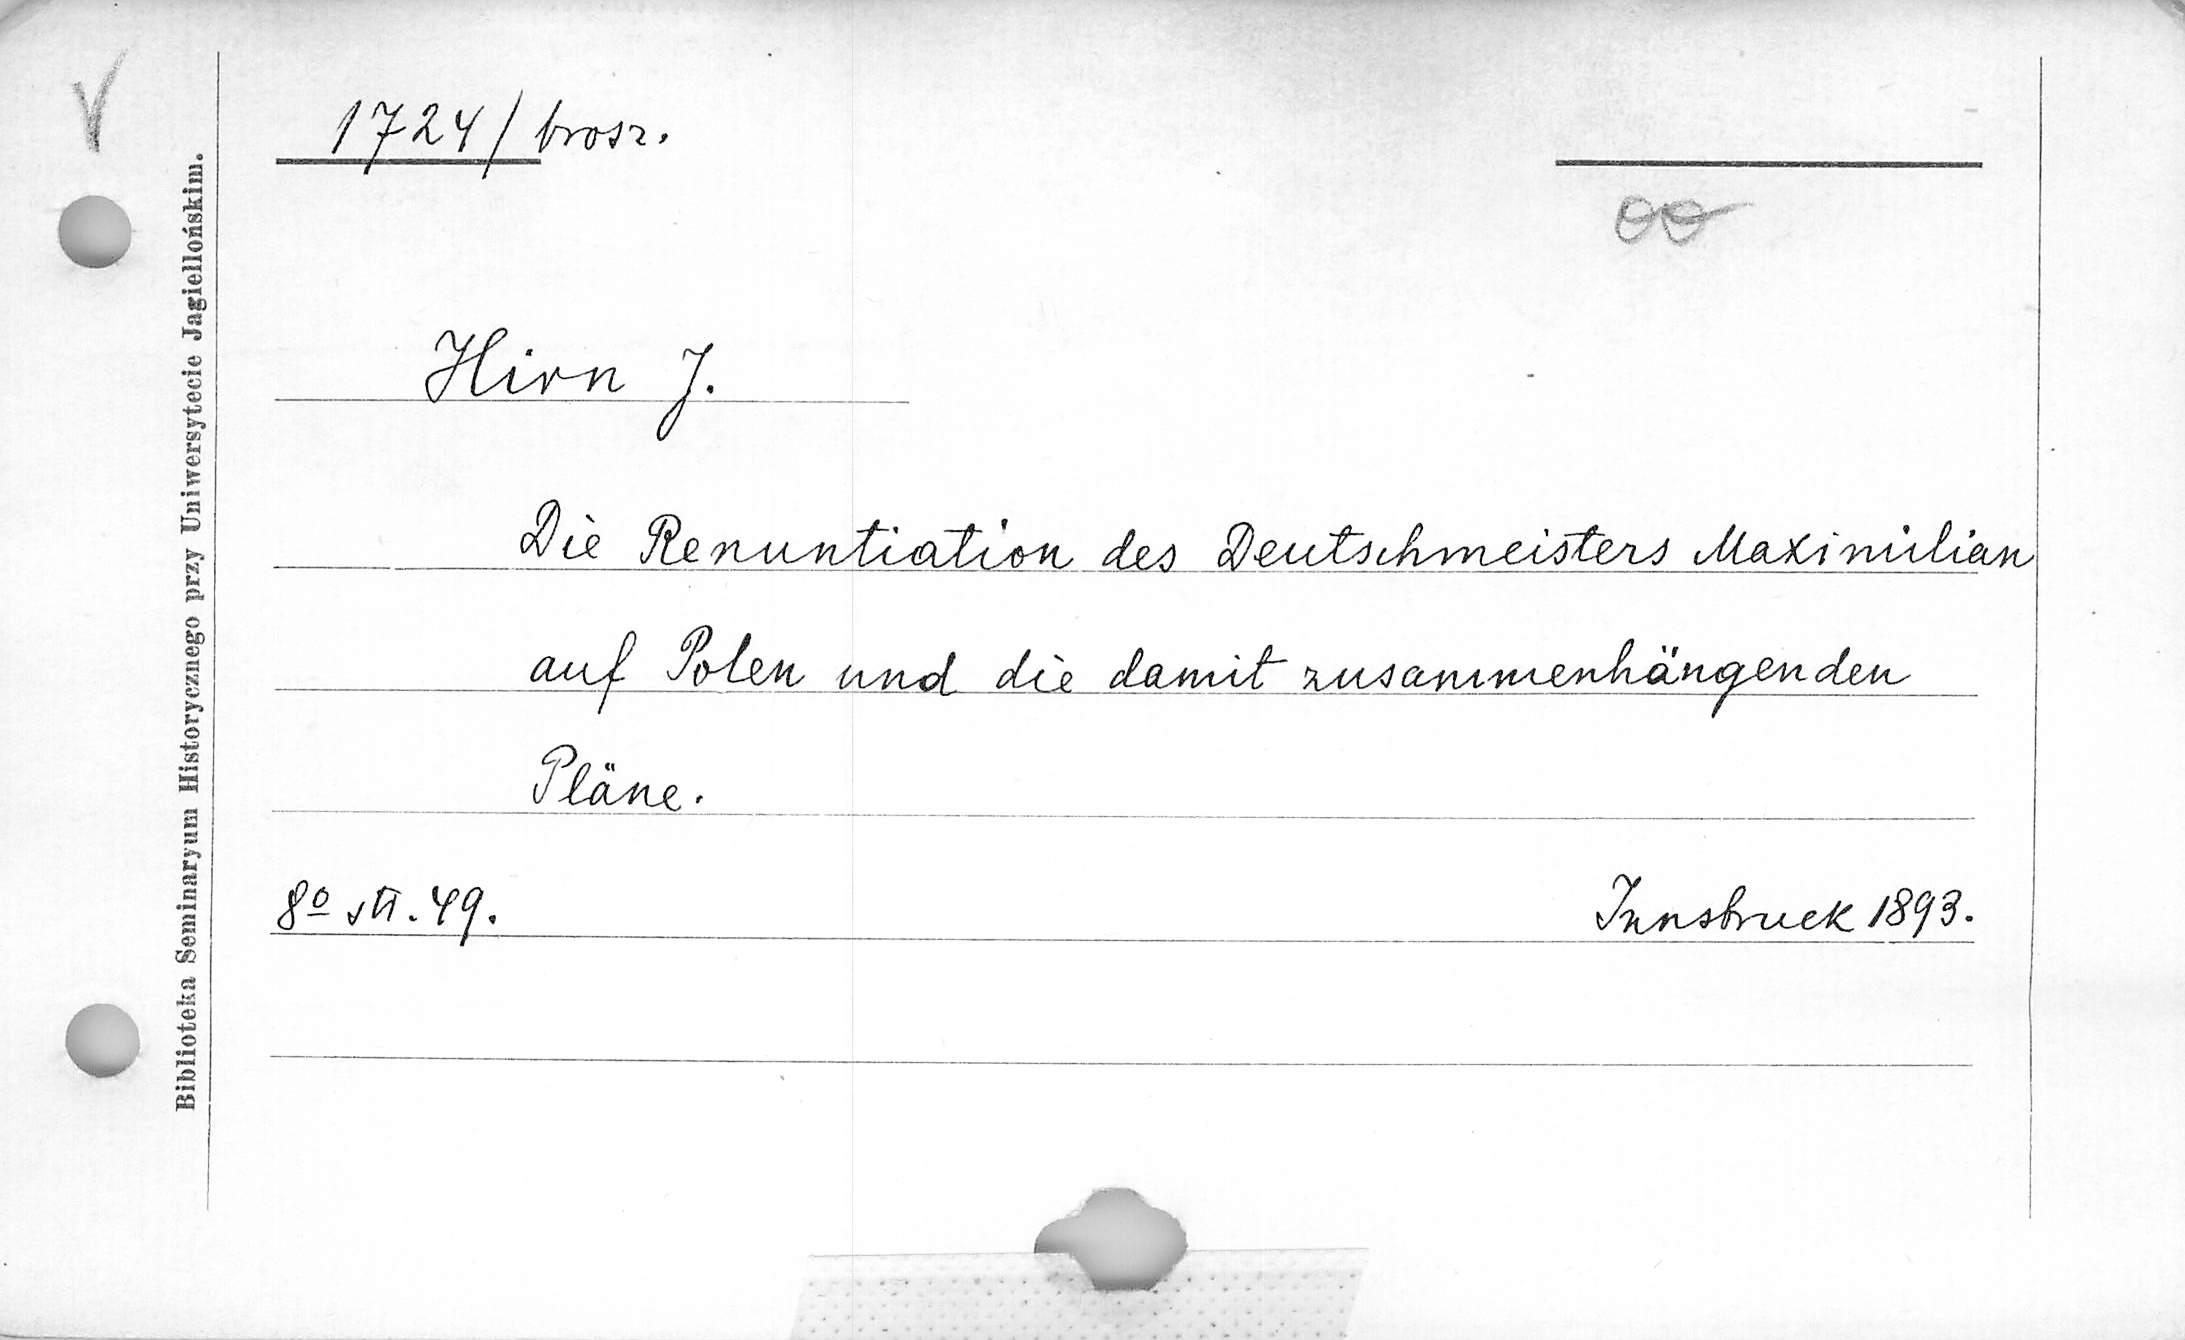 1724/brosz.
Hirn J.
Die Renuntiation des Deutschmeisters Maximilian
auf Polen und die damit zusammenhängenden
Pläne.
8º str. 49.
Innsbruck 1893.
Biblioteka Seminaryum Historycznego przy Uniwersytecie Jagiellońskim.